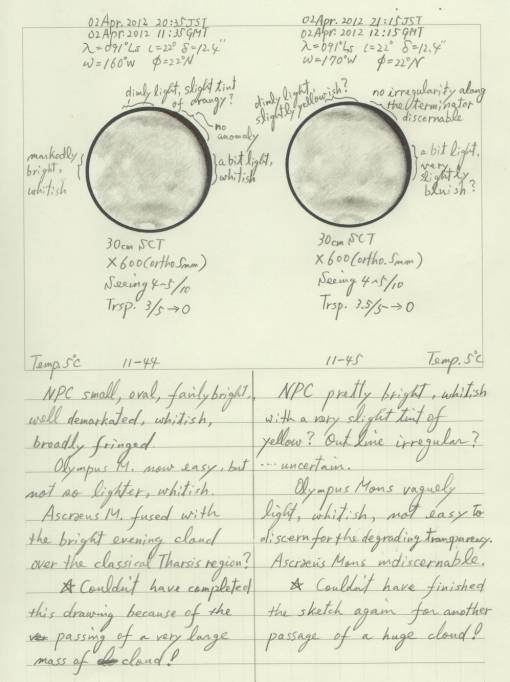 02 Apr. 2012 20:35 JST
02 Apr. 2012 11:35 GMT
λ=091°Ls ι=22° δ=12.4"
ω=160°W φ=22°N
dimly light, slight tint
of orangy?
no
anomaly
markedly
bright,
whitish
a bit light,
whitish
30cm SCT
×600 (ortho.5mm)
Seeing 4-5/10
Trsp. 3/5→0
Temp. 5°C 11-44
02 Apr. 2012 21:15 JST
02 Apr. 2012 12:15 GMT
λ=091°Ls ι=22° δ=12.4"
ω=170°W φ=22°N
dimly light,
slightly yellowish?
no irregularity along
the terminator
discernable
a bit light,
very
slightly
bluish?
30cm SCT
×600 (ortho.5mm)
Seeing 4-5/10
Trsp. 3.5/5→0
11-45 Temp. 5°C
NPC small, oval, fairly bright,
well demarkated, whitish,
broadly fringed
Olympus M. now easy, but
not so lighter, whitish.
Ascraeus M. fused with
the bright evening cloud
over the classical Tharsis region?
☆ Couldn't have completed
this drawing because of the
passing of a very large
mass of cloud!
NPC pretty bright, whitish
with a very slight tint of
yellow? Out line irregular?
... uncertain.
Olympus Mons vaguely
light, whitish, not easy to
discern for the degrading transparency.
Ascraeus Mons indiscernable.
☆ Couldn't have finished
the sketch again for another
passage of a huge cloud!